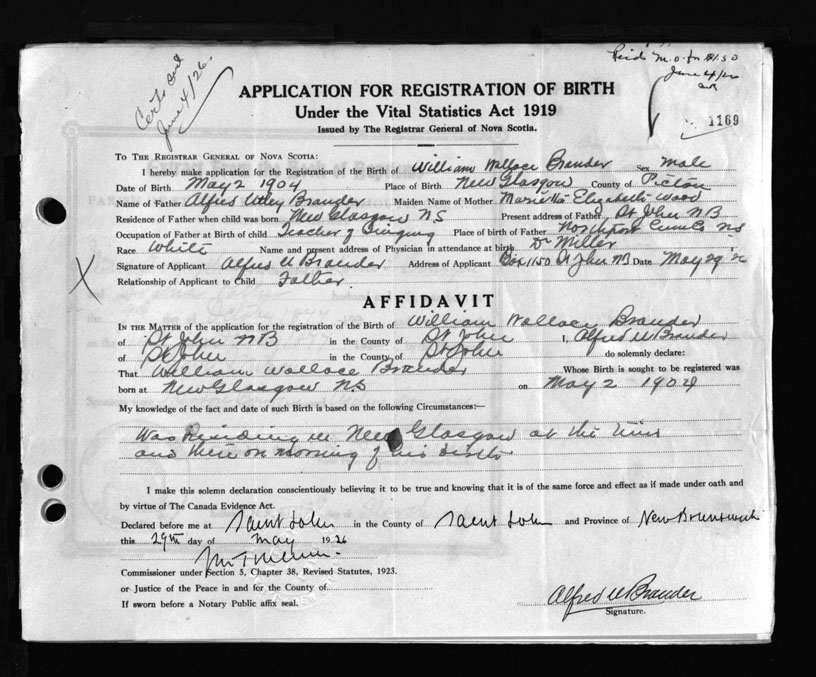 Certs sent
June 4/26.
Paid m.o. for $1.50
June 4/26
APPLICATION FOR REGISTRATION OF BIRTH
Under the Vital Statistics Act 1919
Issued by The Registrar General of Nova Scotia.
1169
TO THE REGISTRAR GENERAL OF NOVA SCOTIA:
I hereby make application for the Registration of the Birth of William Wallace Brander Sex Male
Date of Birth May 2 1904 Place of Birth New Glasgow County of Pictou
Name of Father Alfred Utley Brander Maiden Name of Mother Marietta Elizabeth Wood
Residence of Father when child was born New Glasgow NS Present address of Father St John NB
Occupation of Father at Birth of child Teacher of Singing Place of birth of Father Northport Cumb Co NS
Race White Name and present address of Physician in attendance at birth Dr Miller
Signature of Applicant Alfred U Brander Address of Applicant Box 1150 St John NB Date May 29 26
Relationship of Applicant to Child Father
X
AFFIDAVIT
IN THE MATTER of the application for the registration of the Birth of William Wallace Brander
of St John NB in the County of St John I, Alfred U Brander
of St John in the County of St John do solemnly declare:
That William Wallace Brander Whose Birth is sought to be registered was
born at New Glasgow NS on May 2 1904
My knowledge of the fact and date of such Birth is based on the following Circumstances:—
Was Residing in New Glasgow at the time
and there on morning of his birth
I make this solemn declaration conscientiously believing it to be true and knowing that it is of the same force and effect as if made under oath and
by virtue of The Canada Evidence Act.
Declared before me at Saint John in the County of Saint John and Province of New Brunswick
this 29th day of May 1926
Commissioner under Section 5, Chapter 38, Revised Statutes, 1923.
or Justice of the Peace in and for the County of
If sworn before a Notary Public affix seal.
Alfred U Brander
Signature.